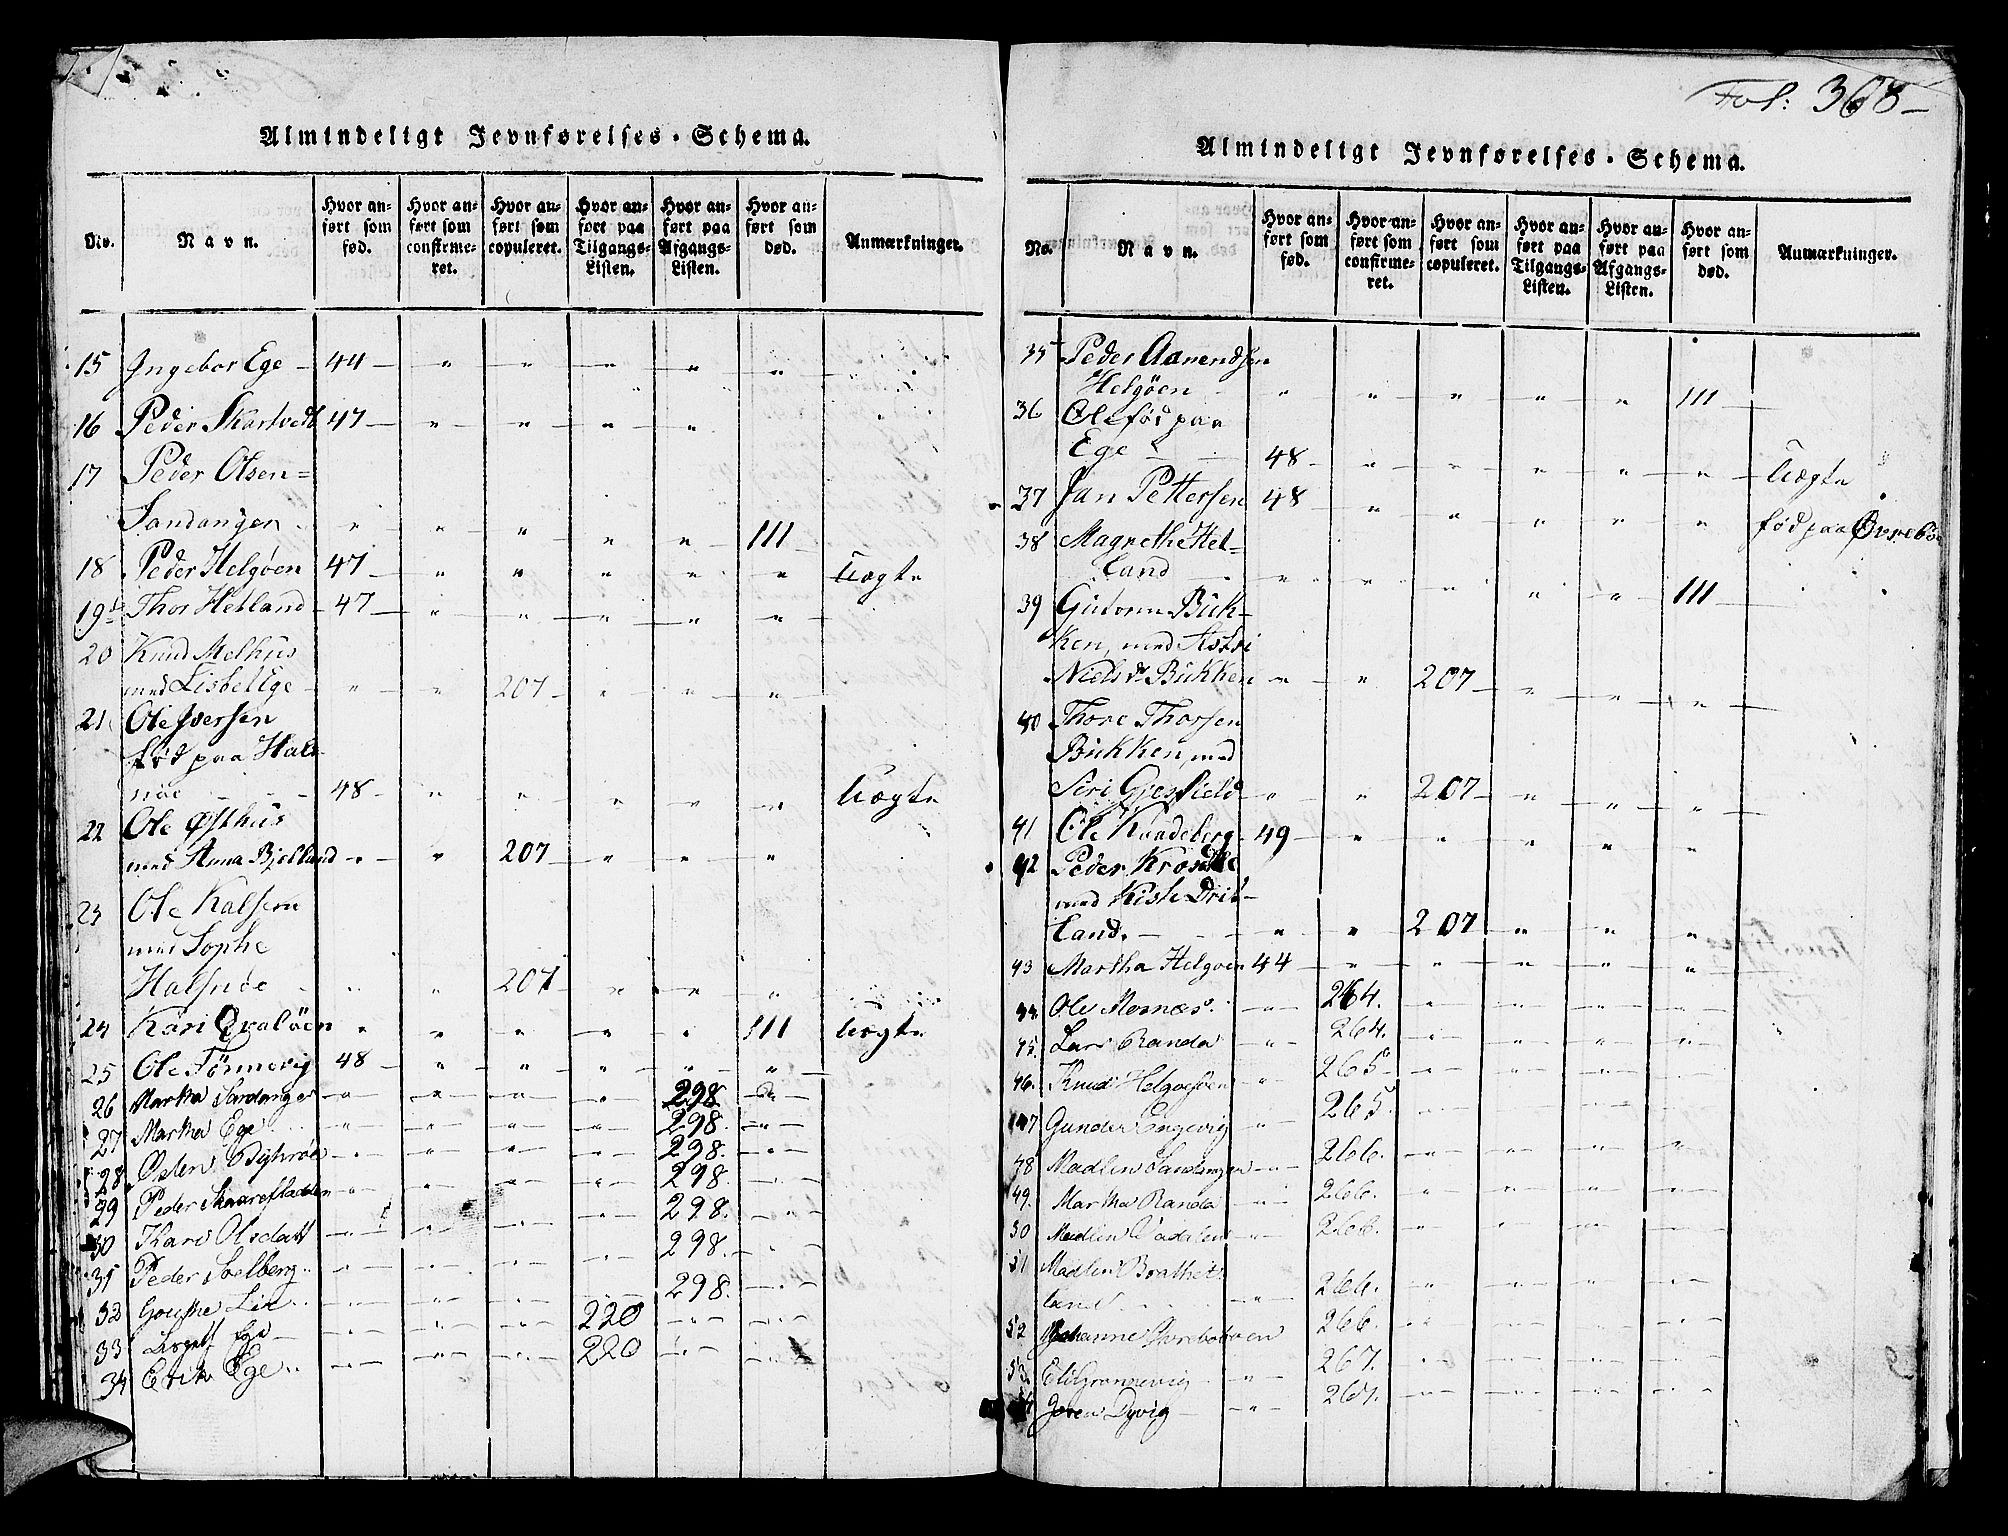 Fol: 368
Almindeligt Jevnførelses-Schema.
No. Navn. Hvor anført som fød. Hvor anført som confirmeret. Hvor anført som copuleret. Hvor anført paa Tilgangs-Listen. Hvor anført paa Afgangs-Listen. Hvor anført som død. Anmærkninger.
15 Ingebor Ege 44 " " " " "
16 Peder Skartvedt 47 " " " "
17 Peder Olsen=
Sandangen " " " " " 111
18 Peder Helgøen 47 " " " " " Uægte
19 Thor Hetland 47 " " " " "
20 Knud Melhus
med Lisbet Ege " " 207 " " "
21 Ole Iversen
fød paa Hals
nöe 48 " " " " " Uægte
22 Ole Østhus
med Anna Bjelland " " 207 " " "
23 Ole Kalsem
med Sophe
Halsnöe " " 207 " " "
24 Kari Qvalöen " " " " " 111 Uægte
25 Ole Tönnevig 48 " " " " "
26 Martha Sandanger " " " " 298 "
27 Martha Ege " " " " 298. "
28 " " " " 298. "
29 Peder " " " " 298. "
30 Kari Olsdatt " " " " 298. "
31 Peder Soelberg " " " " 298. "
32 Gouthe Lie " " " " 298. "
33 Lisbett Ege " " " 220 " "
34 Erik Ege " " " 220 " "
Almindeligt Jevnførelses-Schema.
No. Navn. Hvor anført som fød. Hvor anført som confirmeret. Hvor anført som copuleret. Hvor anført paa Tilgangs-Listen. Hvor anført paa Afgangs-Listen. Hvor anført som død. Anmærkninger.
35 Peder Aamendsen
Helgöen " " " " " 111
36 Ole fød paa
Ege 48 " " " " " Uægte
37 Jan Pettersen 48 " " " " " fød paa Øvreböe
38 Magnethe Het-
land " " " " " 111
39 Gutorm Buk-
ken, med Astri
Niels dr Bukken " " 207 " " "
40 Thore Thorsen
Bukken, med
Siri Gjesfield " " 207 " " "
41 Ole Kvadeberg 49 " " " " "
42 Peder
med Kisle Drit-
land. " " 207 " " "
43 Martha Helgøen 44 " " " " "
44 Ole Mosnæs. " 264. " " " "
45. Lars Randa " 264. " " " "
46. Knud Helgoesen " 265. " " " "
47 Gunder Engevig " 265. " " " "
48 Madlin Sandanger " 266. " " " "
49. Martha Randa " 266. " " " "
50 Madlin " 266. " " " "
51 Madlin Brathet-
land " 266. " " " "
52 Johanne " 266. " " " "
53. Eli Grønnevig " 267. " " " "
54 Joren Dyvig " 267. " " " "